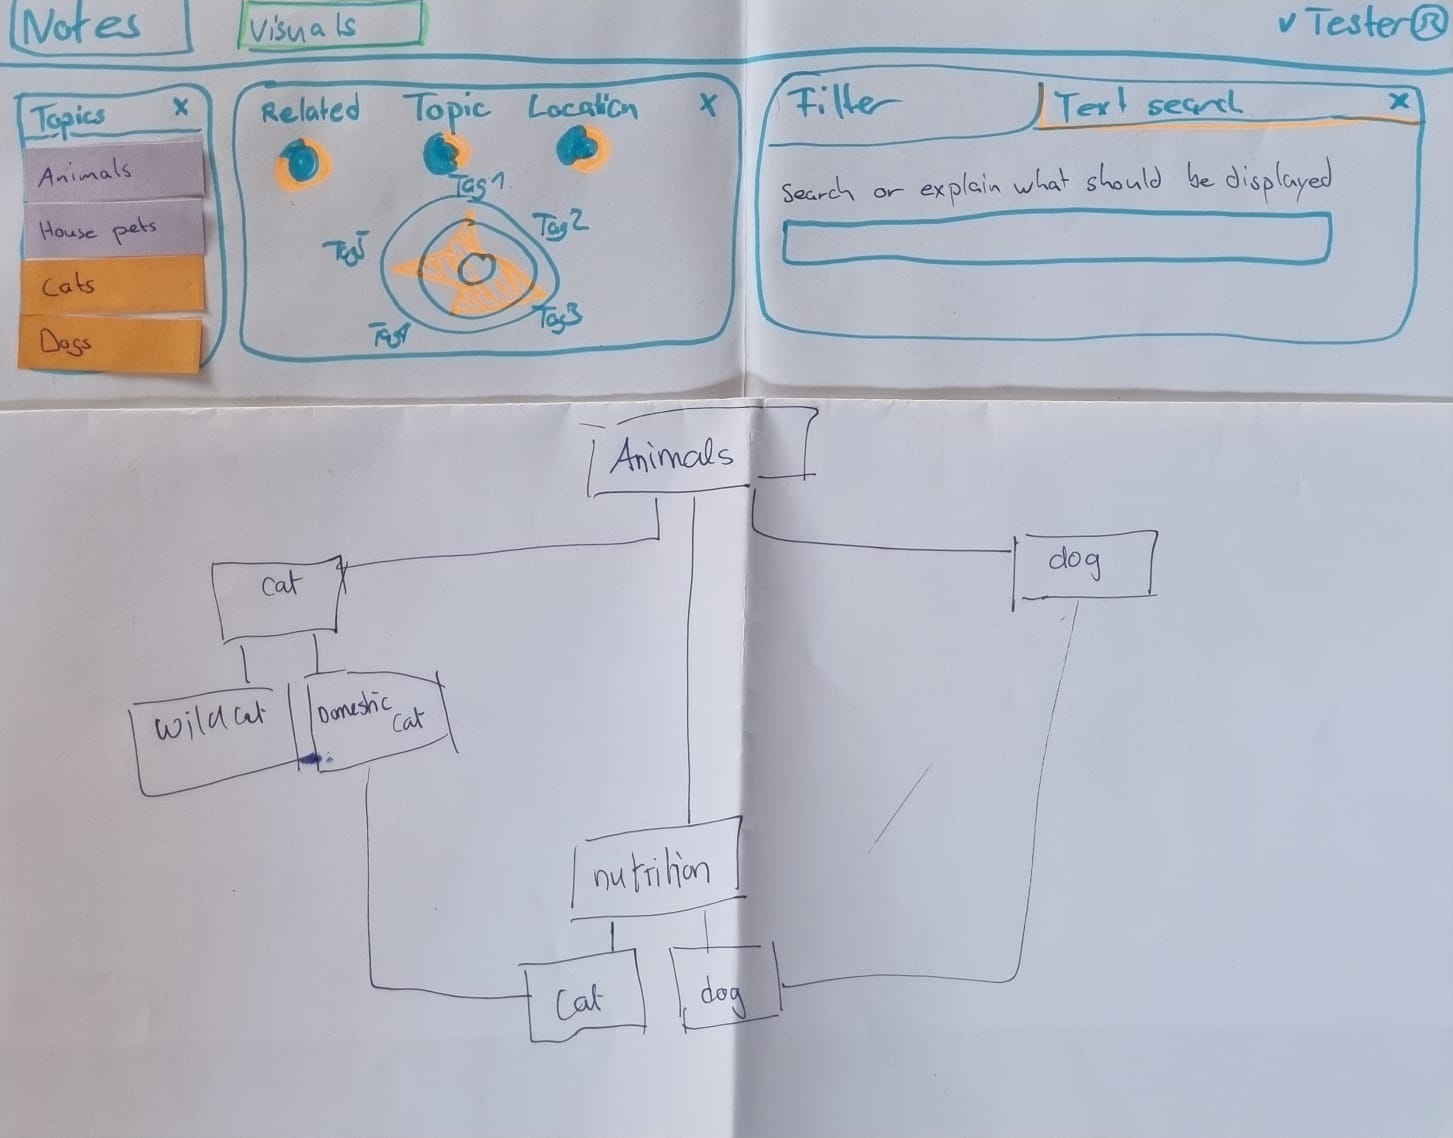 Notes
Visuals
v Tester ®
Topics x
Animals
House pets
Cats
Dogs
Related Topic Location x
Tag1
Tag2
Tag3
Tag4
Tag5
Filter
Text search x
Search or explain what should be displayed
Animals
cat
dog
Wild cat
Domestic
cat
nutrition
Cat
dog